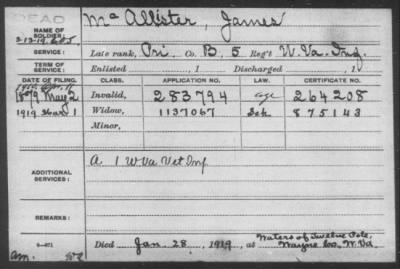 DEAD
NAME OF SOLDIER: McAllister, James
SERVICE: Late rank, Pri Co. B, 5 Reg't W. Va. Inf.
TERM OF SERVICE: Enlisted , 1 Discharged , 1
DATE OF FILING. CLASS. APPLICATION NO. LAW. CERTIFICATE NO.
1879 May 2 Invalid, 283794 age 264208
1919 Mar 1 Widow, 1137067 875143
Minor,
ADDITIONAL SERVICES: A 1 W Va Vet Inf.
REMARKS:
Died Jan. 28, 1919, at Waters of Twelve Pole,
Wayne Co., W. Va.